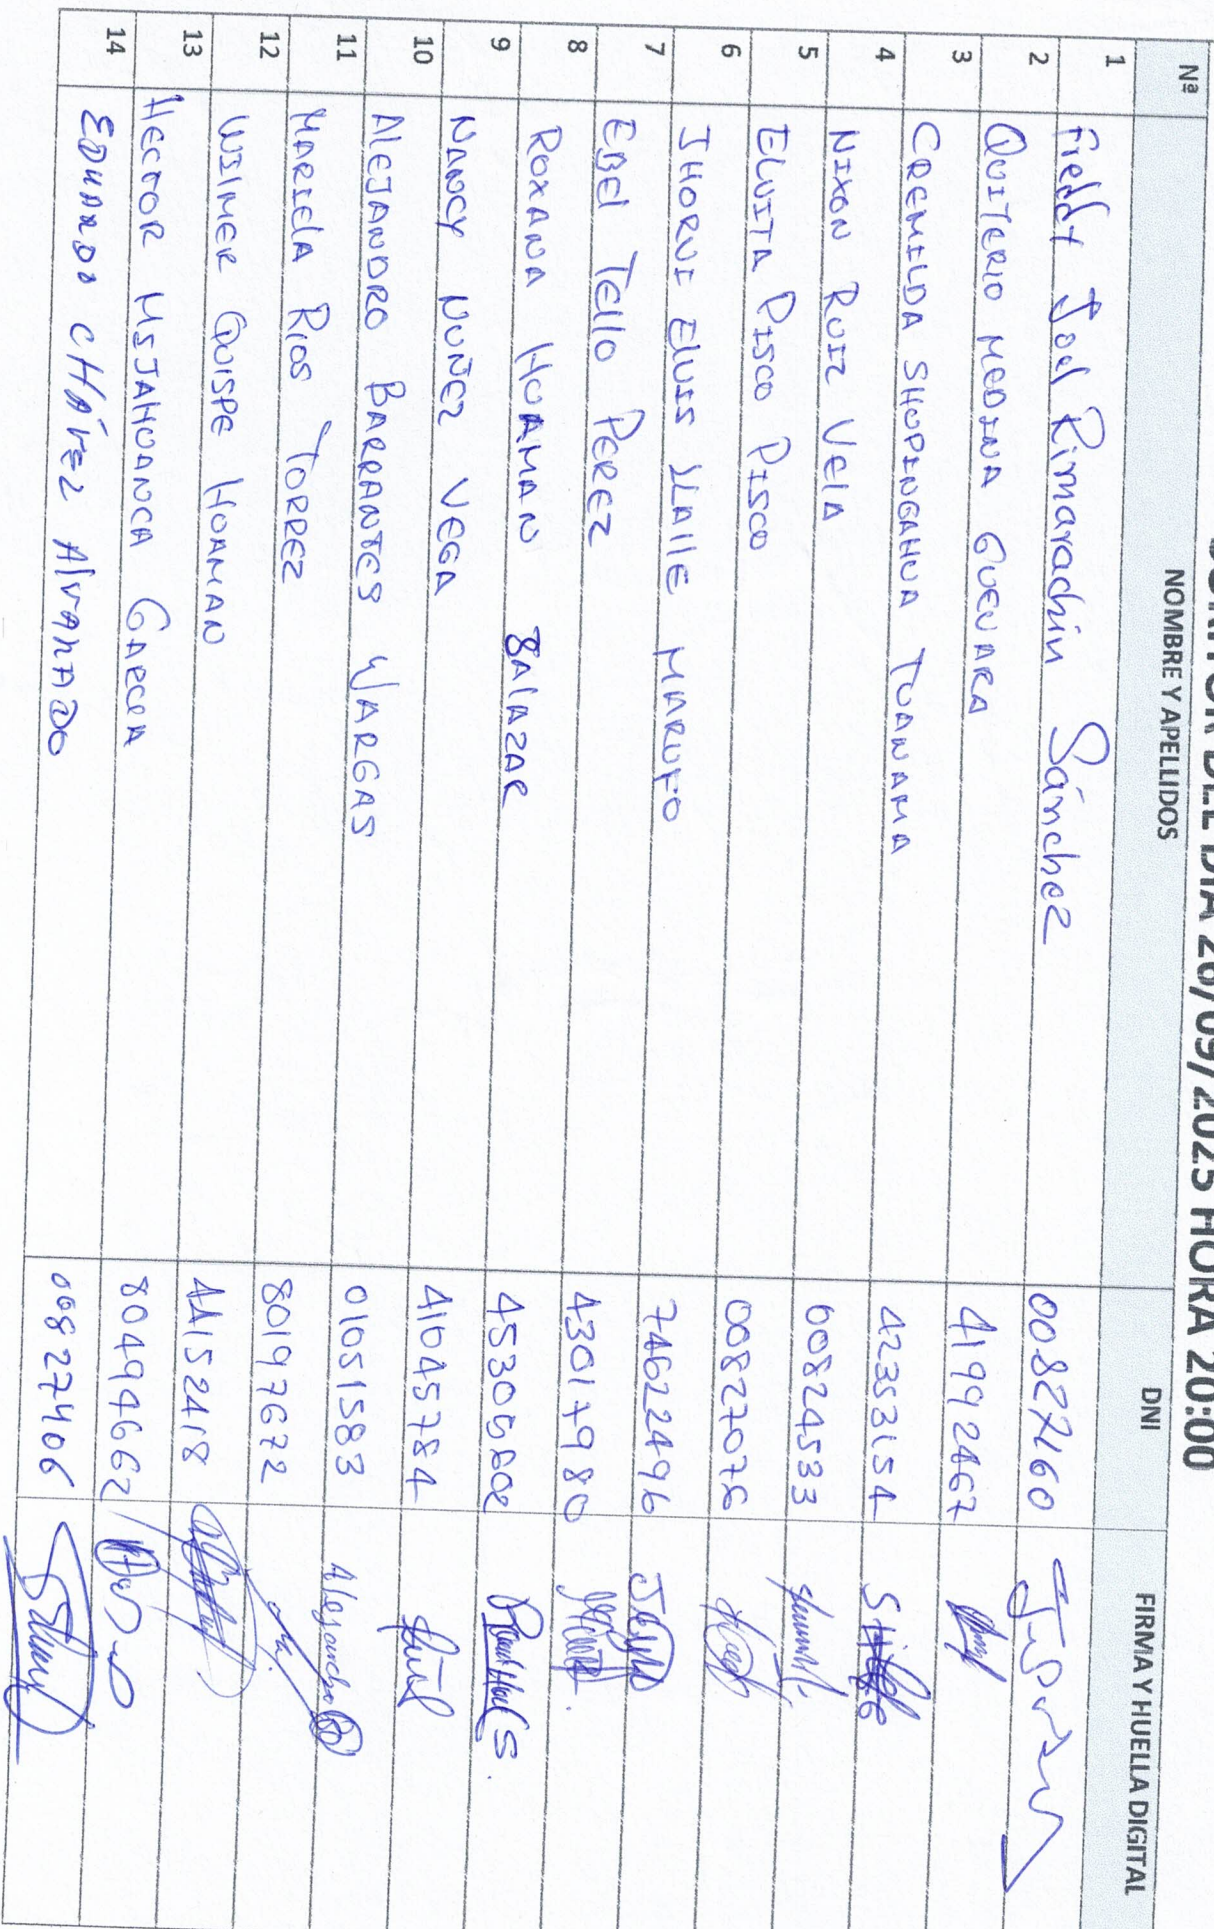 DEL DIA 26/09/2025 HORA 20:00
Nª NOMBRE Y APELLIDOS DNI FIRMA Y HUELLA DIGITAL
1 Fieldt Joel Rimarachin Sánchez 00827160
2 QUITERIO MEDINA GUEVARA 41992467
3 CREMILDA SHUPINGAHUA TUANAMA 42353154
4 NIXON RUIZ VELA 00824533
5 ELVITA PISCO PISCO 00827076
6 JHORVI ELVIS LLALLE MARUFO 74622496
7 EBEL TELLO PEREZ 43017980
8 ROXANA HUAMAN SALAZAR 45305602
9 NANCY NUÑEZ VEGA 41045784
10 ALEJANDRO BARRANTES VARGAS 01051583 Alejandro
11 MARIELA RIOS TORREZ 80197672
12 WILMER QUISPE HUAMAN 44152418
13 HECTOR MIJAHUANCA GARCIA 80494662
14 EDUARDO CHÁVEZ ALVARADO 00827406